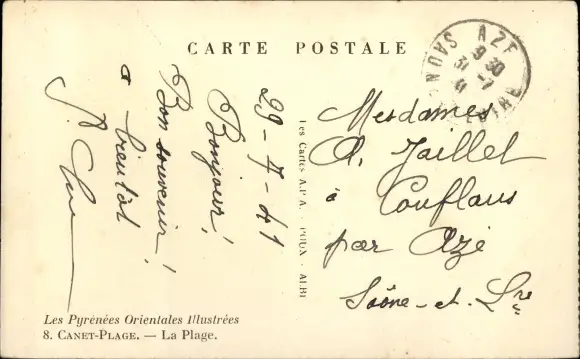 CARTE POSTALE
AZE
9 30
31 -7
41
29-7-41
Bonjour!
Bon souvenir!
à bientôt
Les Cartes A.P.A. POUX - ALBI
Mesdames
A. Jaillet
à Conflans
par Azé
Saône-et-Lre
Les Pyrénées Orientales Illustrées
8. CANET-PLAGE. — La Plage.